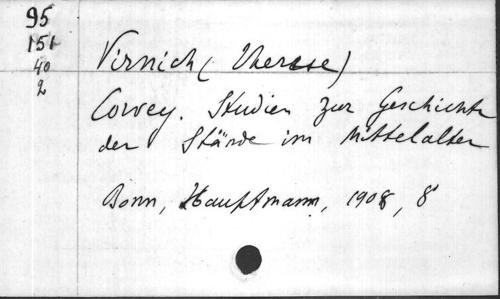 95
151
40
2
Virnich (Therese)
Corvey. Studien zur Geschichte
der Stände im Mittelalter
Bonn, Hauptmann, 1908, 8°